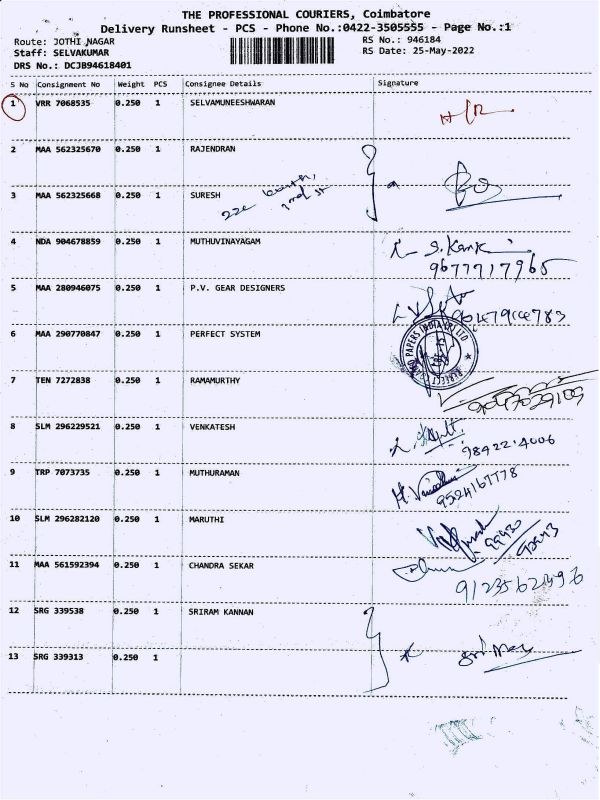 THE PROFESSIONAL COURIERS, Coimbatore
Delivery Runsheet - PCS - Phone No.:0422-3505555 - Page No.:1
Route: JOTHI NAGAR RS No.: 946184
Staff: SELVAKUMAR RS Date: 25-May-2022
DRS No.: DCJB94618401
S No Consignment No Weight PCS Consignee Details Signature
1 VRR 7068535 0.250 1 SELVAMUNEESHWARAN
2 MAA 562325670 0.250 1 RAJENDRAN
3 MAA 562325668 0.250 1 SURESH
4 NDA 904678859 0.250 1 MUTHUVINAYAGAM
9677717965
5 MAA 280946075 0.250 1 P.V. GEAR DESIGNERS
6 MAA 290770847 0.250 1 PERFECT SYSTEM
7 TEN 7272838 0.250 1 RAMAMURTHY
8 SLM 296229521 0.250 1 VENKATESH
9 TRP 7073735 0.250 1 MUTHURAMAN
9524167778
10 SLM 296282120 0.250 1 MARUTHI
11 MAA 561592394 0.250 1 CHANDRA SEKAR
12 SRG 339538 0.250 1 SRIRAM KANNAN
13 SRG 339313 0.250 1